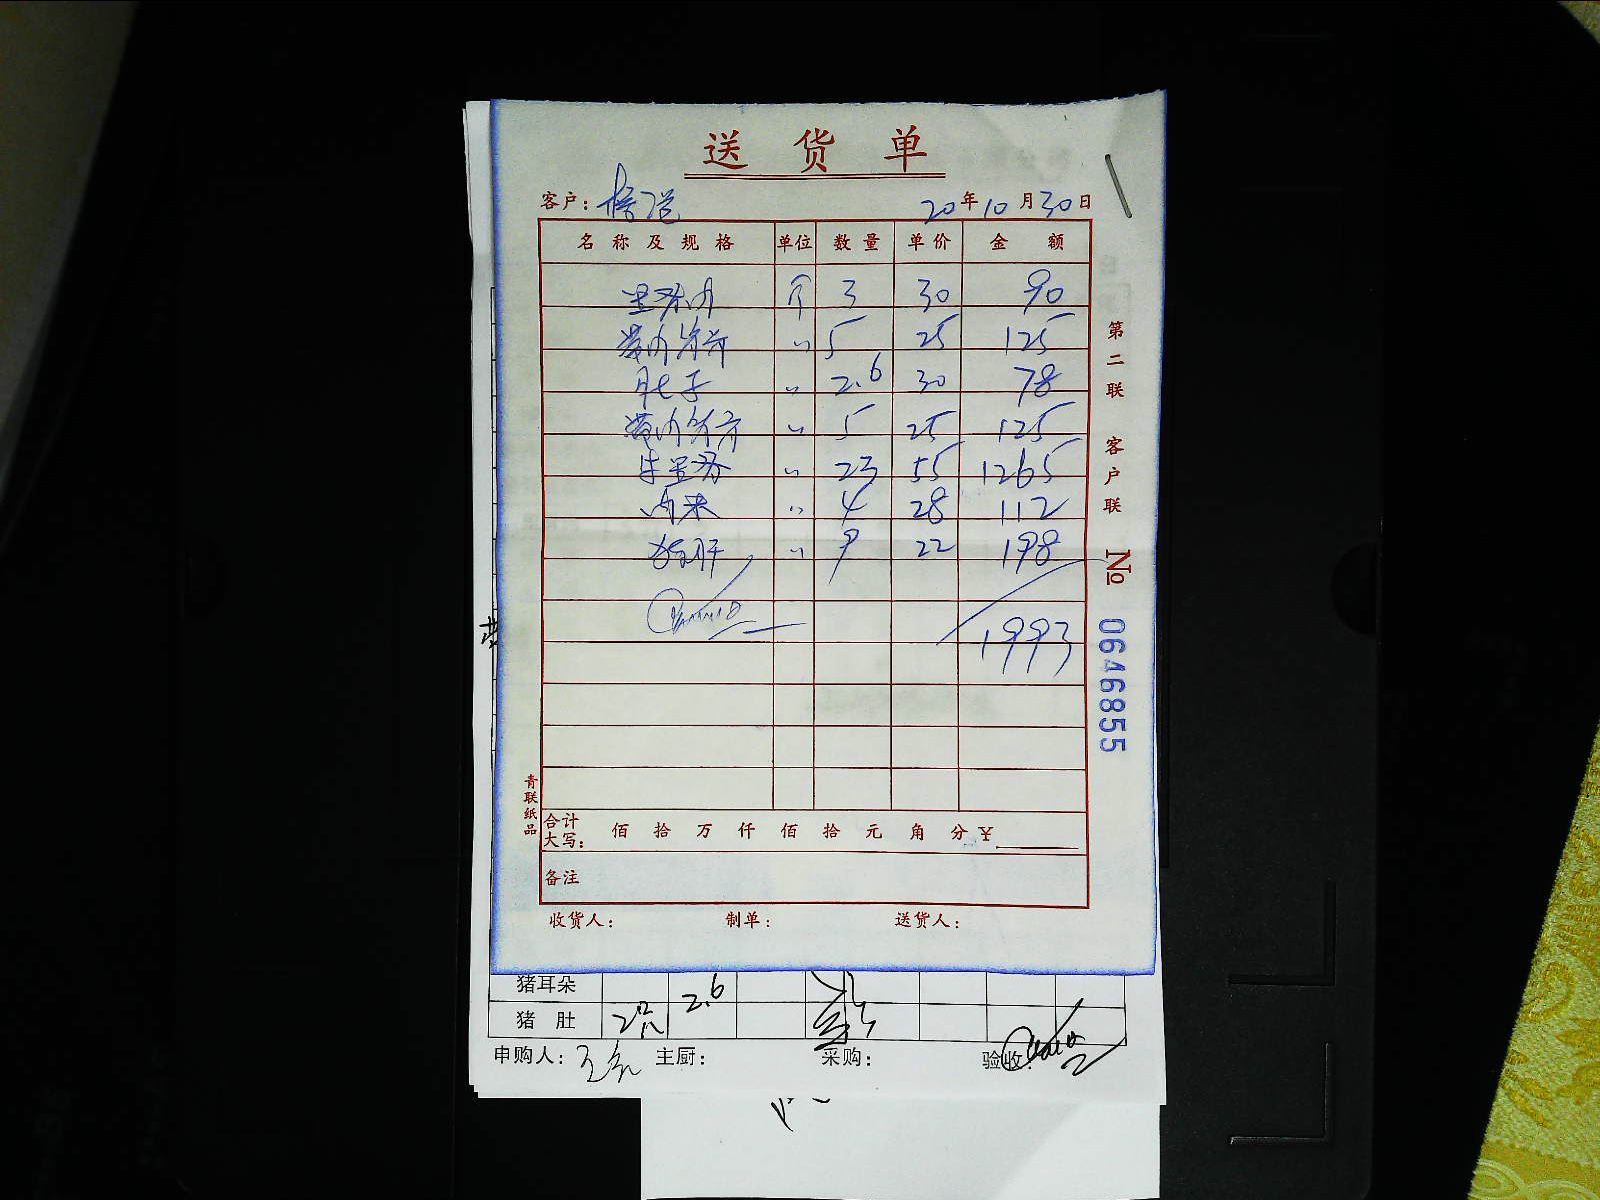 送货单
客户： 20年10月30日
名称及规格 单位 数量 单价 金额
个 3 30 90
带肉 〃 5 25 125
肚子 〃 2.6 30 78
带肉 〃 5 25 125
牛里 〃 23 55 1265
肉末 〃 4 28 112
猪肝 〃 9 22 198
1993
合计大写： 佰 拾 万 仟 佰 拾 元 角 分 ¥
备注
收货人： 制单： 送货人：
第二联 客户联 № 0646855
青联纸品
猪耳朵
猪肚 2.6
申购人： 主厨： 采购： 验收：